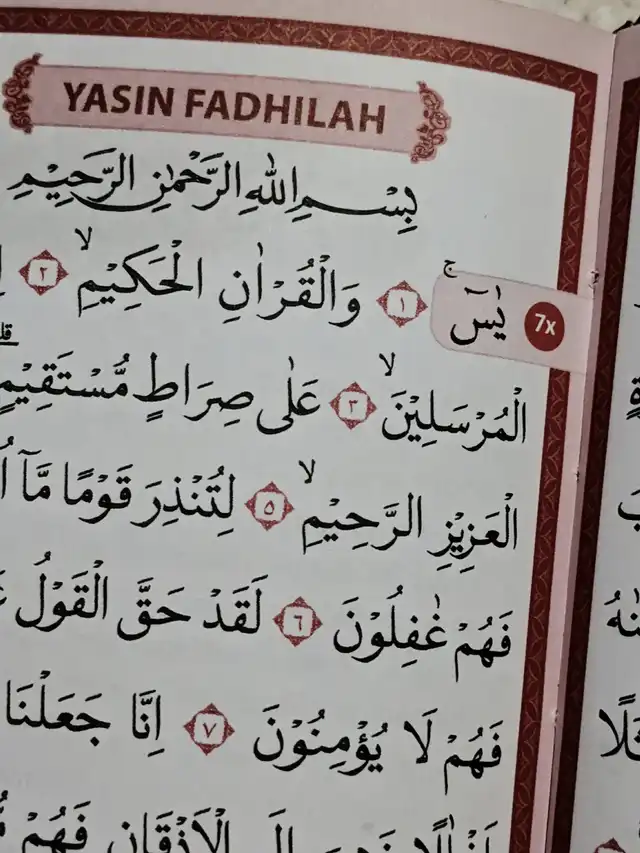 YASIN FADHILAH
بِسْمِ اللهِ الرَّحْمٰنِ الرَّحِيْمِ
7x يٰسۤ ۚ ﴿١﴾ وَالْقُرْاٰنِ الْحَكِيْمِ ۙ ﴿٢﴾
الْمُرْسَلِيْنَ ۙ ﴿٣﴾ عَلٰى صِرَاطٍ مُّسْتَقِيْمٍ
الْعَزِيْزِ الرَّحِيْمِ ۙ ﴿٥﴾ لِتُنْذِرَ قَوْمًا مَّآ
فَهُمْ غٰفِلُوْنَ ﴿٦﴾ لَقَدْ حَقَّ الْقَوْلُ
فَهُمْ لَا يُؤْمِنُوْنَ ﴿٧﴾ اِنَّا جَعَلْنَا
الْاَذْقَانِ فَهُمْ